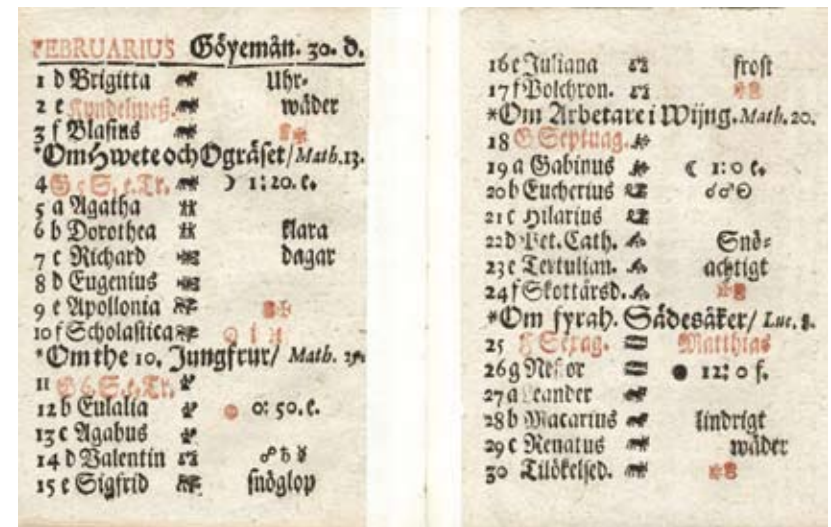 FEBRUARIUS Göyemån. 30. D.
1 d Brigitta Uhr-
2 e Kyndelmeß. wäder
3 f Blasius
*Om Hwete och Ogräset/ Math. 13.
4 G 5 S. e. Tr. ☽ 1: 20. e.
5 a Agatha
6 b Dorothea klara
7 c Richard dagar
8 d Eugenius
9 e Apollonia
10 f Scholastica
*Om the 10. Jungfrur/ Math. 25.
11 G 6 S. e. Tr.
12 b Eulalia 0: 50. e.
13 c Agabus
14 d Valentin ☍ ♄ ☿
15 e Sigfrid snöglop
16 e Juliana frost
17 f Polchron.
*Om Arbetare i Wijng. Math. 20.
18 G Septuag.
19 a Gabinus ☾ 1: 0 e.
20 b Eucherius ☌ ♂ ☉
21 c Hilarius
22 d Pet. Cath. Snö-
23 e Tertulian. achtigt
24 f Skottårsd.
*Om fyrah. Sädesåker/ Luc. 8.
25 Sexag. Matthias
26 g Nestor ● 12: 0 f.
27 a Leander
28 b Macarius lindrigt
29 c Renatus wäder
30 Tilökelsed.